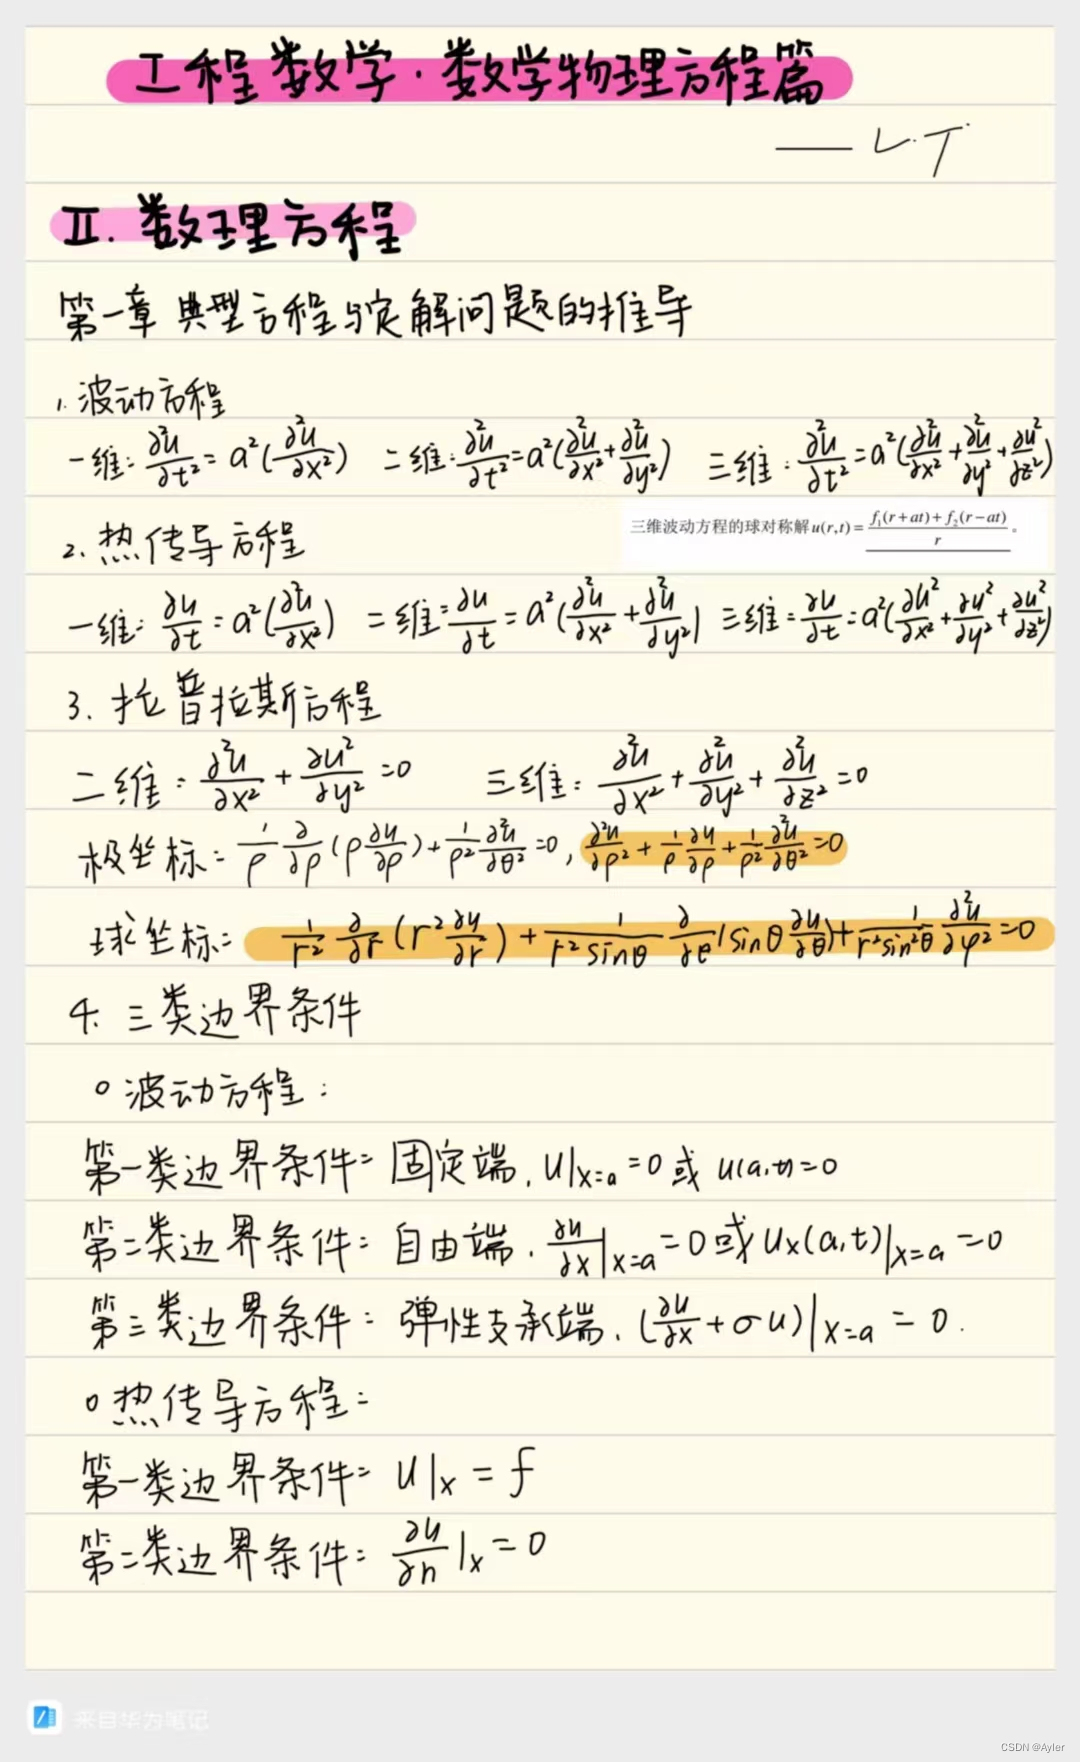 工程数学·数学物理方程篇
—— L.T
Ⅱ. 数理方程
第一章 典型方程与定解问题的推导
1. 波动方程
一维: ∂²u/∂t² = a²(∂²u/∂x²) 二维: ∂²u/∂t² = a²(∂²u/∂x² + ∂²u/∂y²) 三维: ∂²u/∂t² = a²(∂²u/∂x² + ∂²u/∂y² + ∂u²/∂z²)
三维波动方程的球对称解 u(r,t) = (f₁(r+at)+f₂(r−at))/r 。
2. 热传导方程
一维: ∂u/∂t = a²(∂²u/∂x²) 二维: ∂u/∂t = a²(∂²u/∂x² + ∂²u/∂y²) 三维: ∂u/∂t = a²(∂u²/∂x² + ∂u²/∂y² + ∂u²/∂z²)
3. 拉普拉斯方程
二维: ∂²u/∂x² + ∂u²/∂y² = 0 三维: ∂²u/∂x² + ∂²u/∂y² + ∂²u/∂z² = 0
极坐标: 1/ρ ∂/∂ρ (ρ ∂u/∂ρ) + 1/ρ² ∂²u/∂θ² = 0, ∂²u/∂ρ² + 1/ρ ∂u/∂ρ + 1/ρ² ∂²u/∂θ² = 0
球坐标: 1/r² ∂/∂r (r² ∂u/∂r) + 1/(r² sinθ) ∂/∂θ (sinθ ∂u/∂θ) + 1/(r² sin²θ) ∂²u/∂φ² = 0
4. 三类边界条件
○ 波动方程:
第一类边界条件: 固定端, u|x=a = 0 或 u(a,t)=0
第二类边界条件: 自由端, ∂u/∂x|x=a = 0 或 ux(a,t)|x=a = 0
第三类边界条件: 弹性支承端, (∂u/∂x + σu)|x=a = 0.
○ 热传导方程:
第一类边界条件: u|x = f
第二类边界条件: ∂u/∂n|x = 0
来自华为笔记
CSDN @Ayler